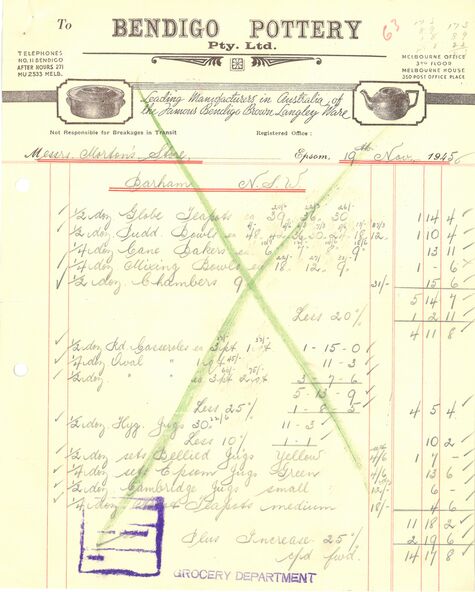 To
BENDIGO POTTERY
Pty. Ltd.
63
TELEPHONES
NO. 11 BENDIGO
AFTER HOURS 271
MU 2533 MELB.
MELBOURNE OFFICE
3RD FLOOR
MELBOURNE HOUSE
350 POST OFFICE PLACE
Leading Manufacturers in Australia of
the Famous Bendigo Brown Langley Ware
Not Responsible for Breakages in Transit
Registered Office :
Messrs. Morton's Store, Epsom, 19th Nov. 1945
Barham N.S.W
½ doz Globe Teapots ea 39 36 30 1 14 4
½ doz Pudd Bowls ea 48 42 36 30 24 18 12 1 10 4
¼ doz Cane Bakers ea 6 7 8 9" 13 11
¼ doz Mixing Bowls ea 18 12 9 1 - 6
½ doz Chambers 9 31/- 15 6
5 14 7
Less 20% 1 2 11
4 11 8
½ doz Rd Casseroles ea 1-15-0
¼ doz Oval " 11-3
½ doz " ea 3-7-6
5-13-9
Less 25% 1-8-5 4 5 4
½ doz Hyg. Jugs 30 11-3
Less 10% 1-1 10 2
½ doz sets Bellied Jugs Yellow 1 7 -
¼ doz sets Epsom Jugs Green 13 6
½ doz Cambridge Jugs small 12/- 6 -
¼ doz Teapots medium 18/- 4 6
11 18 2
Plus Increase 25% 2 19 6
c/d fwd. 14 17 8
GROCERY DEPARTMENT